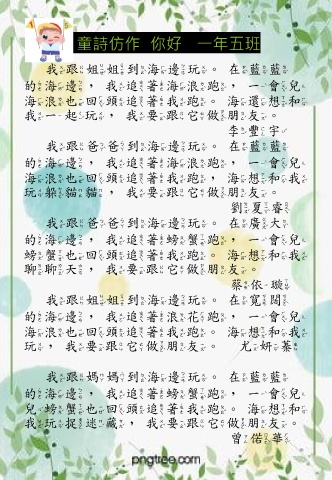 童詩仿作 你好 一年五班
我跟姐姐到海邊玩。在藍藍
的海邊，我追著海浪跑，一會兒
海浪也回頭追著我跑。海還想和
我一起玩，我要跟它做朋友。
李豐宇
我跟爸爸到海邊玩。在藍藍
的海邊，我追著海浪跑，一會兒
海浪也回頭追著我跑，海想和我
玩躲貓貓，我要跟它做朋友。
劉夏睿
我跟爸爸到海邊玩。在廣大
的海邊，我追著螃蟹跑，一會兒
螃蟹也回頭追著我跑。海想和我
聊聊天，我要跟它做朋友。
蔡依璇
我跟姐姐到海邊玩。在寬闊
的海邊，我追著浪花跑，一會兒
海浪也回頭追著我跑。海想和我
玩，我要跟它做朋友。 尤妍蓁
我跟媽媽到海邊玩。在藍藍
的海邊，我追著螃蟹跑，一會兒
兒螃蟹也回頭追著我跑。海想和
我玩捉迷藏，我要跟它做朋友。
曾偌華
pngtree.com